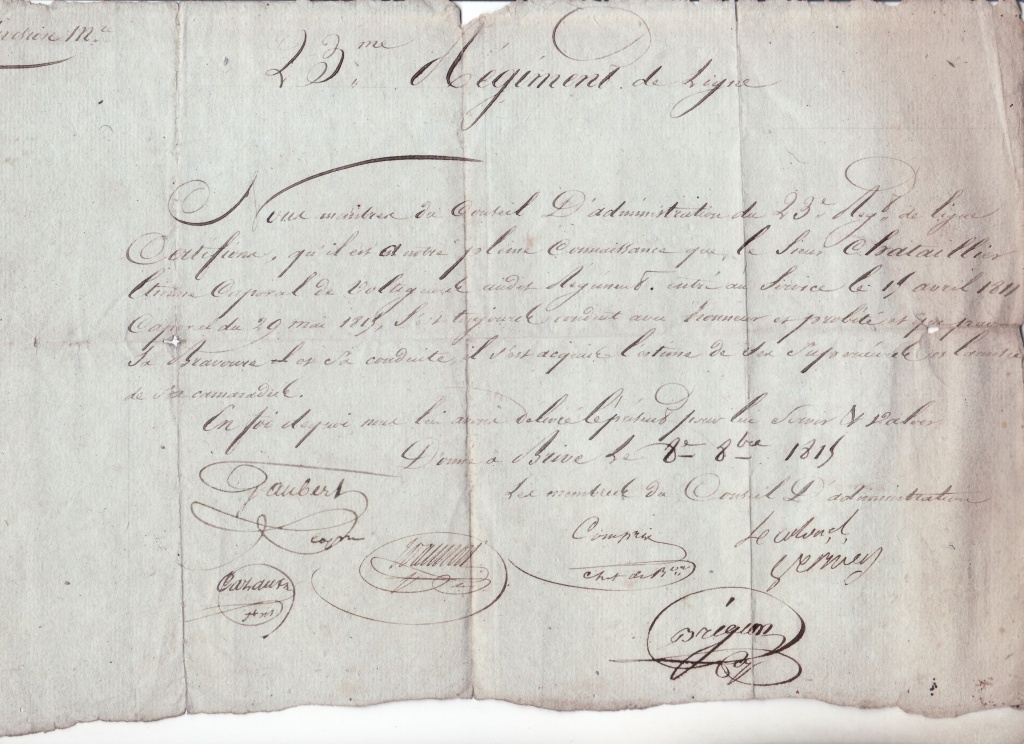 23.me Régiment de Ligne
Nous membres du Conseil D'administration du 23.e Reg.t de ligne
Certifions, qu'il est à notre pleine Connaissance que le Sieur Chataillier
Etienne Caporal de voltigeurs audit Régiment. entré au Service le 15 avril 1811
Caporal du 29 mai 1815, S'est toujours conduit avec honneur et probité et que par
Sa Bravoure et Sa conduite, il s'est acquis l'estime de Ses Supérieurs et l'amitié
de Ses camarades.
En foi de quoi nous lui avons délivré le présent pour lui Servir & valoir
Donné à Brive Le 8e 8bre 1815
Les membres du Conseil D'administration
Gaubert
Comprix
Le colonel
Chef de B.on
Brégeon